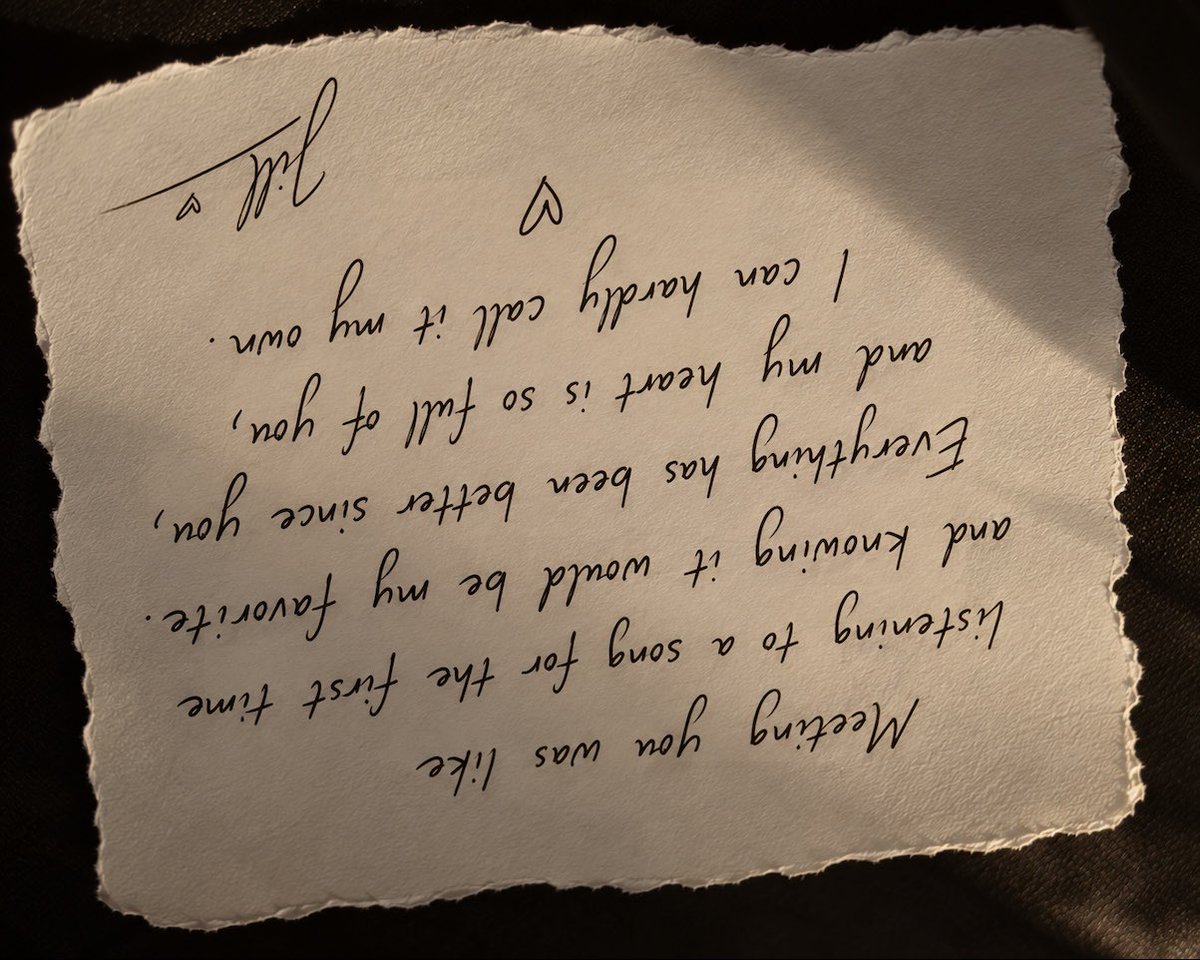 Meeting you was like
listening to a song for the first time
and knowing it would be my favorite.
Everything has been better since you,
and my heart is so full of you,
I can hardly call it my own.
♡
Jill ♡